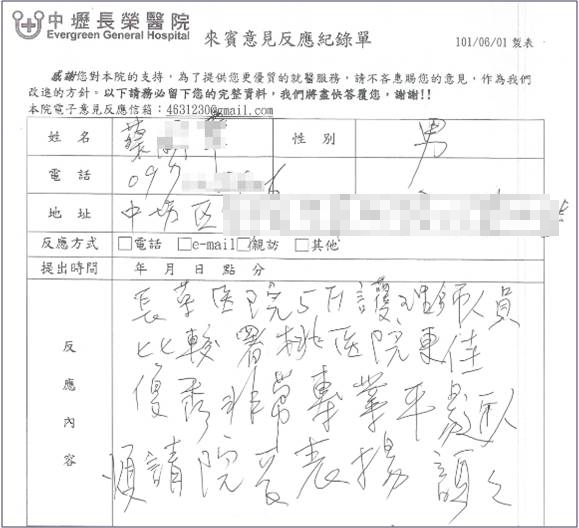 中壢長榮醫院
Evergreen General Hospital
來賓意見反應紀錄單
101/06/01 製表
感謝您對本院的支持，為了提供您更優質的就醫服務，請不吝惠賜您的意見，作為我們
改進的方針。以下請務必留下您的完整資料，我們將盡快答覆您，謝謝!!
本院電子意見反應信箱：4631230@gmail.com
姓名 蔡 性別 男
電話 09
地址 中壢区
反應方式 □電話 □e-mail □親訪 □其他
提出時間 年 月 日 點 分
反應內容
長荣医院5F護理師人員
比較署桃医院更佳
優秀非常專業平易近人
煩請院方表揚 謝謝